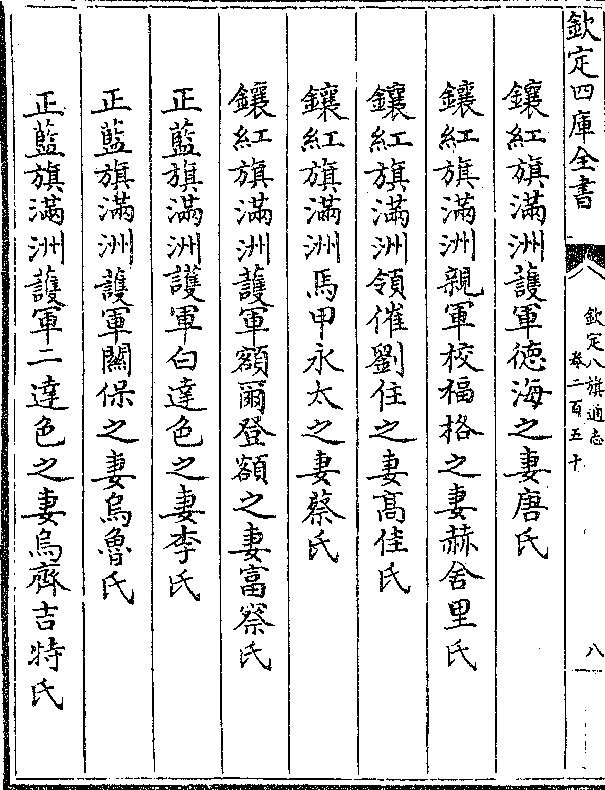 欽定四庫全書
欽定八旗通志
卷二百五十
八
鑲紅旗滿洲護軍德海之妻唐氏
鑲紅旗滿洲親軍校福格之妻赫舍里氏
鑲紅旗滿洲領催劉住之妻高佳氏
鑲紅旗滿洲馬甲永太之妻蔡氏
鑲紅旗滿洲護軍額爾登額之妻富察氏
正藍旗滿洲護軍白達色之妻李氏
正藍旗滿洲護軍關保之妻烏魯氏
正藍旗滿洲護軍二達色之妻烏齊吉特氏